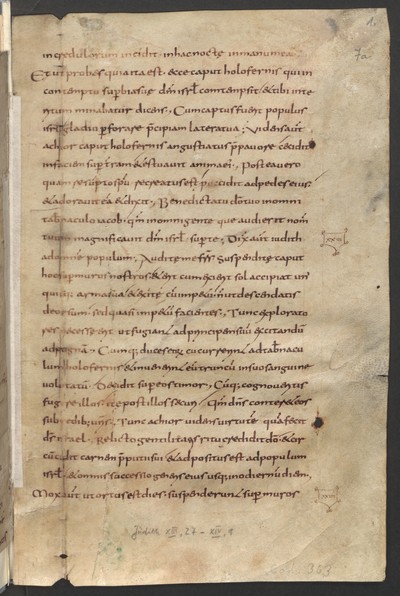 1.
7a
incredulorum incidit inhacnocte inmanumea.
Et ut probes quia ita est. ecce caput holofernis qui in
contemptu superbiae suae dnm isrl contempsit & tibi inte
ritum minabatur dicens. Cum captus fuerit populus
isrl gladio perforare praecipiam latera tua; Videns aut
achior caput holofernis angustiatus prae pavore cecidit
in faciem super terram & aestuavit anima ei. Postea vero
quam resumpto spu recreatus est procidit ad pedes eius
& adoravit ea & dixit. Benedicta tu do tuo in omni
tabernaculo iacob. qm in omni gente quae audierit nom
tuum magnificabitur ds isrl super te; Dixit aut iudith
ad omnem populum. Audite me frs suspendite caput
hoc super muros nostros & erit cum exierit sol accipiat un
quisq; arma sua & exite cum impetu n ut descendatis
deorsum sed quasi impetu facientes. Tunc explorato
res necesse erit ut fugiant ad principem suum excitandum
ad pugna. Cumq; duces eoq; cucurrerint ad tabernacu
lum holofernis & invenerint eu truncu in suo sanguine
volutatu. Decidit super eos timor. Cuq; cognoveritis
fugere illos. ite post illos securi. Qm dns conteret eos
sub pedibus vris. Tunc achior videns virtute qua fecit
ds israel. Relicto gentilitatis ritu credidit do. & cir
cucidit carnem praeputii sui & adpositus est ad populum
isrl & omnis successio generis eius usq; in hodiernu diem.
Mox aut ut ortus est dies. suspenderunt super muros
XXVI
Judith XIII, 27 – XIV, 7
383